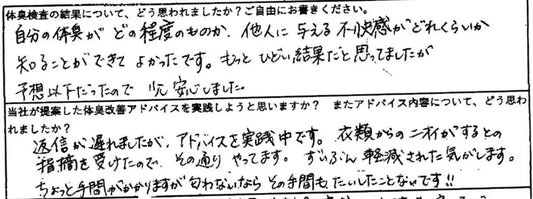 体臭検査の結果について、どう思われましたか？ご自由にお書きください。
自分の体臭がどの程度のものか、他人に与える不快感がどれくらいか
知ることができてよかったです。もっとひどい結果だと思ってましたが
予想以下だったので少し安心しました。
当社が提案した体臭改善アドバイスを実践しようと思いますか？　またアドバイス内容について、どう思わ
れましたか？
返信が遅れましたが、アドバイスを実践中です。衣類からのニオイがするとの
指摘を受けたので、その通りやってます。ずいぶん軽減された気がします。
ちょっと手間がかかりますが匂わないならその手間もたいしたことないです!!